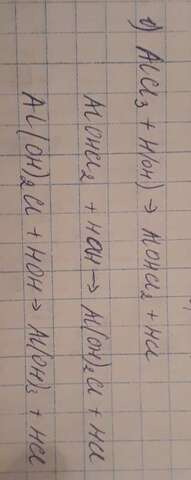 в) AlCl₃ + H(OH) → AlOHCl₂ + HCl
AlOHCl₂ + HOH → Al(OH)₂Cl + HCl
Al(OH)₂Cl + HOH → Al(OH)₃ + HCl